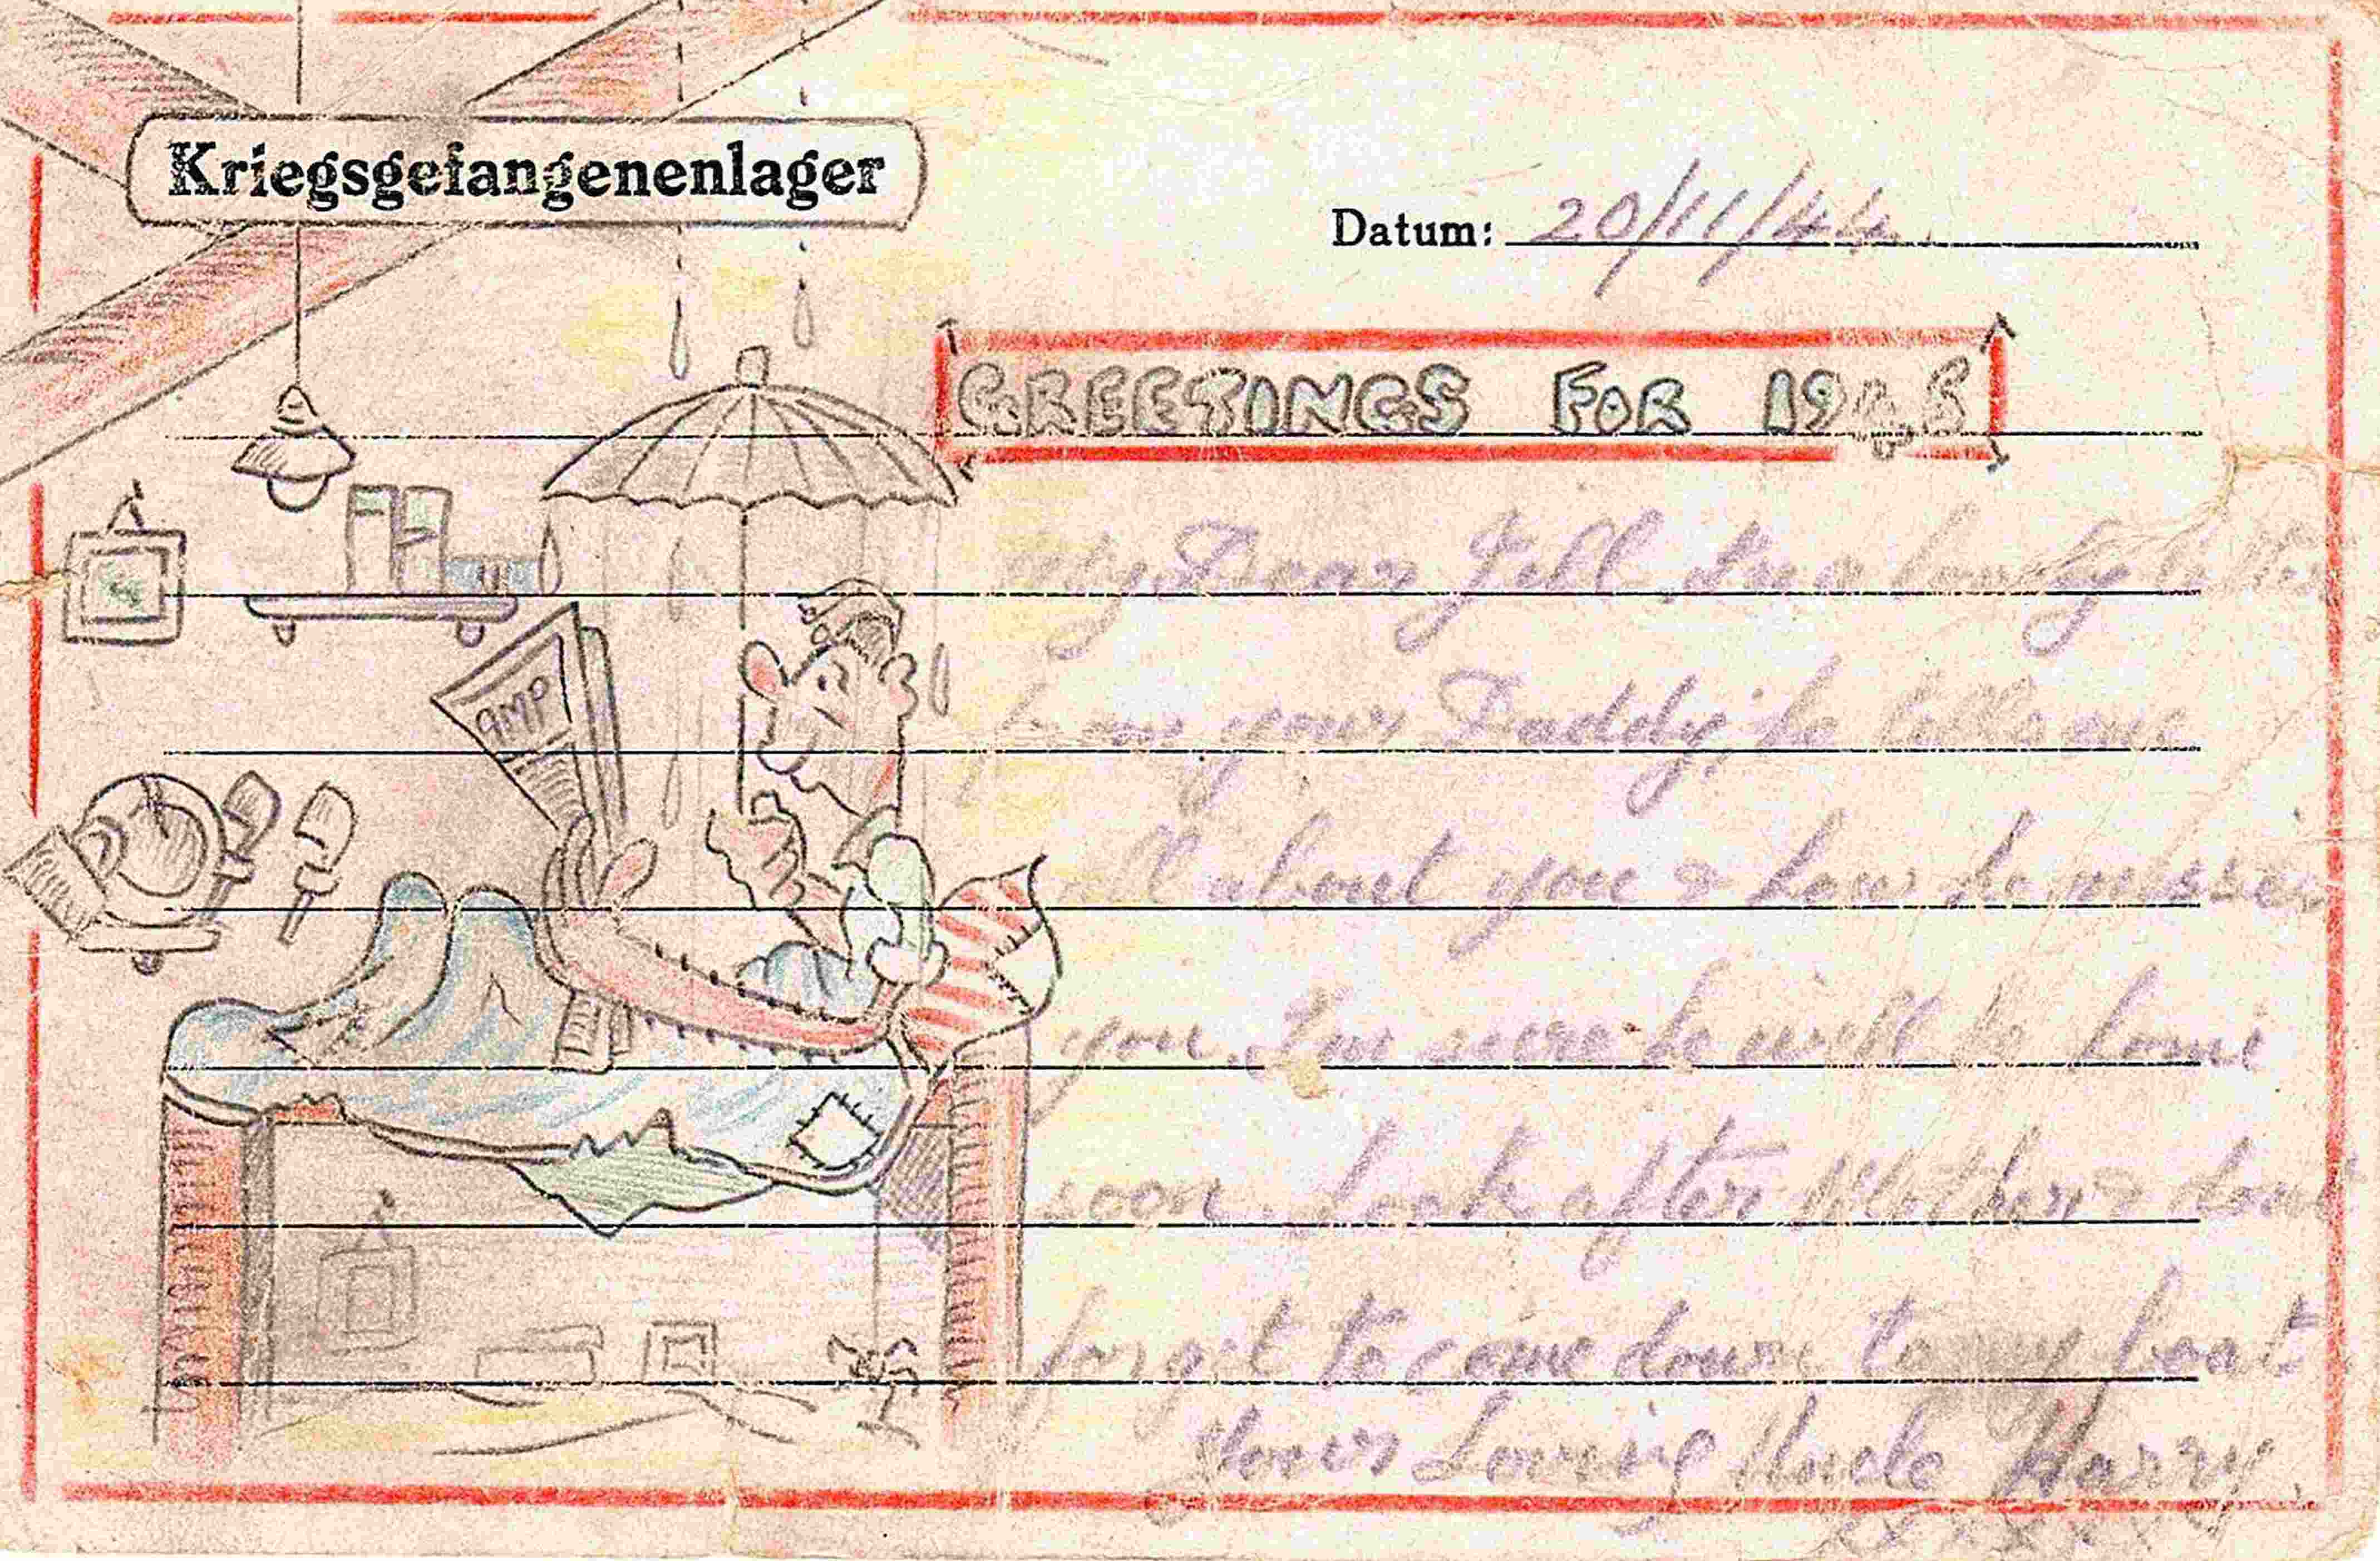 Kriegsgefangenenlager
Datum: 20/11/44.
GREETINGS FOR 1945
CAMP
My Dear Jill. I had a lovely letter
from your Daddy, he tells me
all about you & how he misses
you. I'm sure he will be home
soon. Look after Mother & dont
forget to come down to my boat.
Your Loving Uncle Harry.
xxxxxx